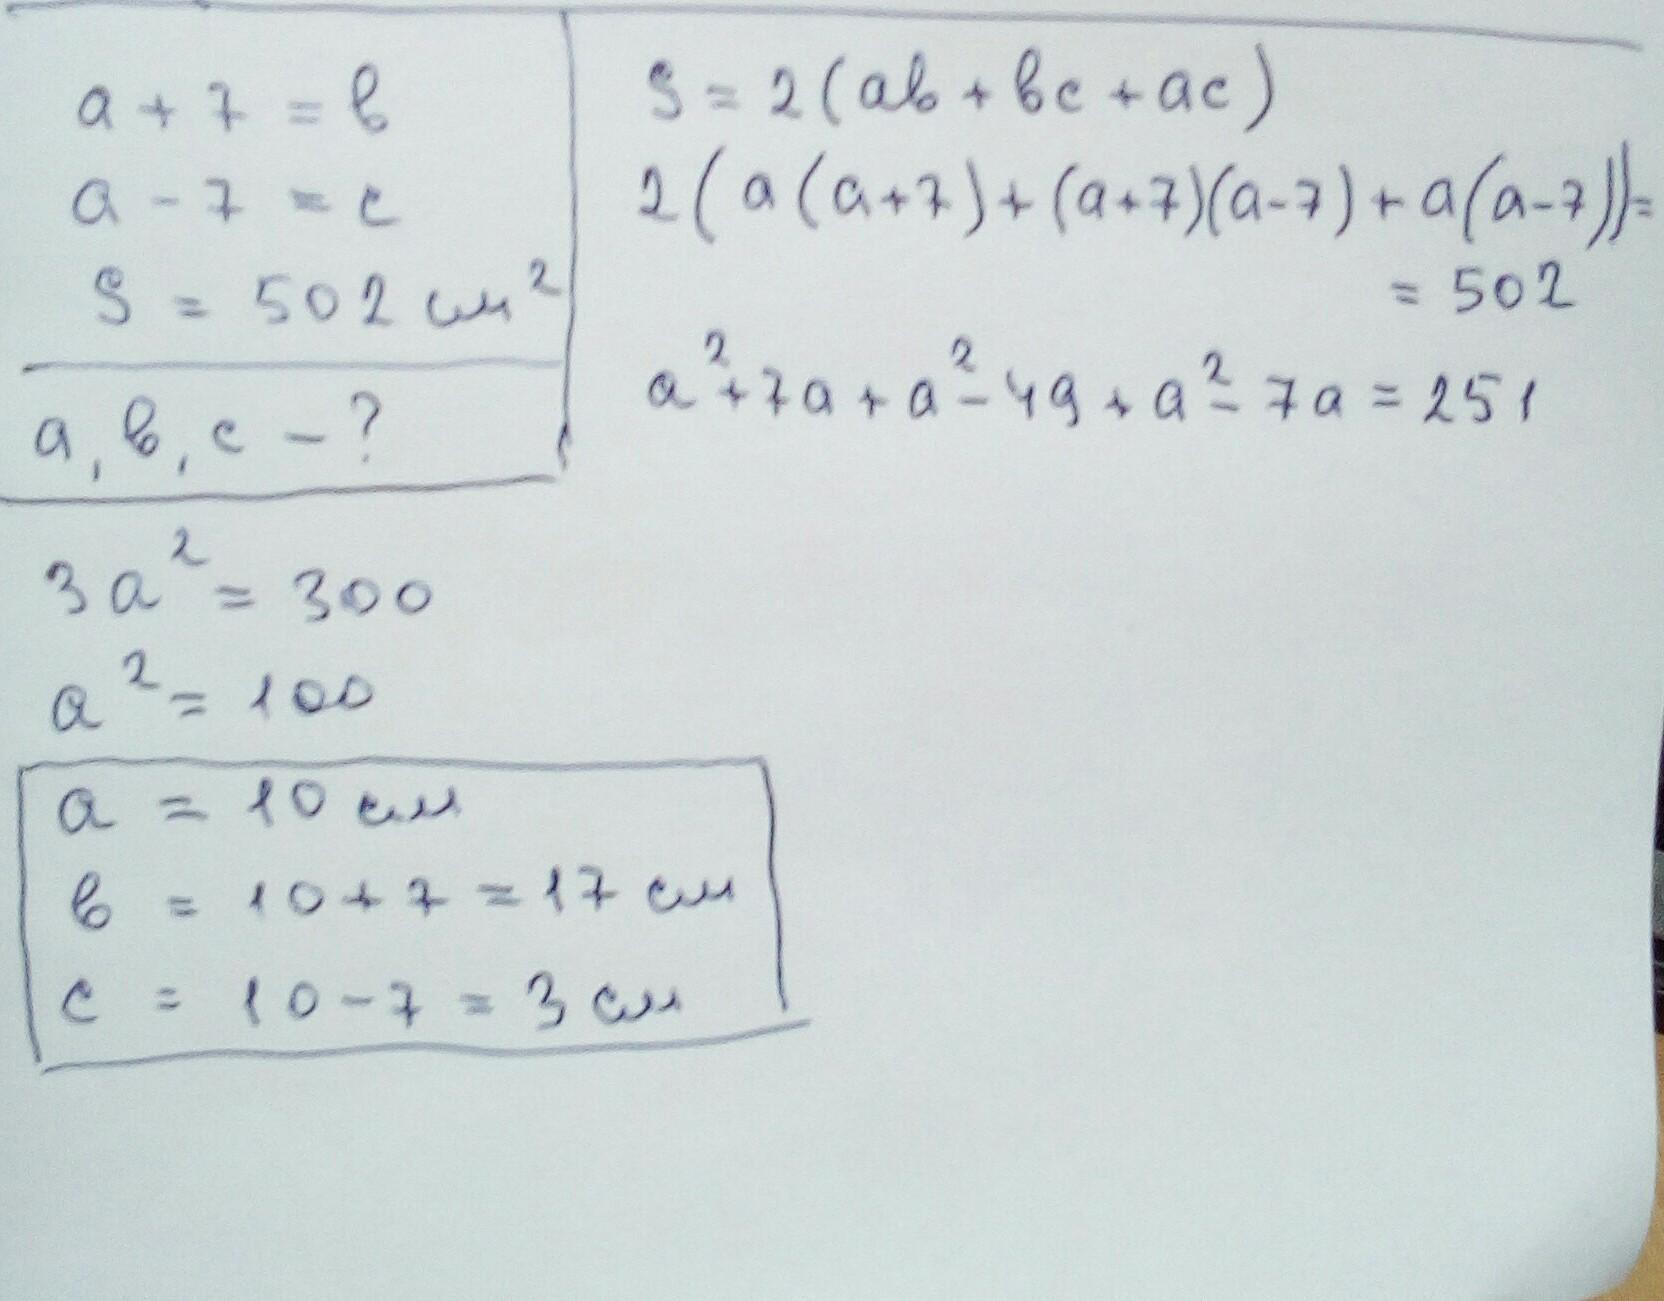 a + 7 = в
a - 7 = c
S = 502 см²
a, в, c - ?
S = 2(ab + вc + ac)
2(a(a+7)+(a+7)(a-7)+a(a-7))=
= 502
a²+7a+a²-49+a²-7a=251
3a² = 300
a² = 100
a = 10 см
в = 10+7 = 17 см
c = 10-7 = 3 см